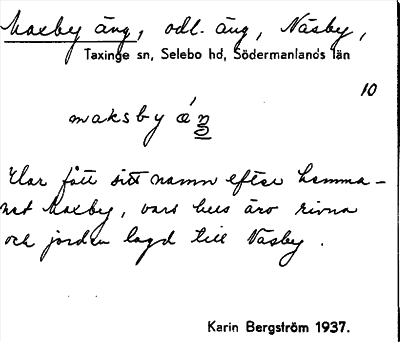 Maxby äng, odl. äng, Näsby,
Taxinge sn, Selebo hd, Södermanlands län
10
maksby
Har fått sitt namn efter hemma-
net Maxby, vars hus äro rivna
och jorden lagd till Näsby.
Karin Bergström 1937.